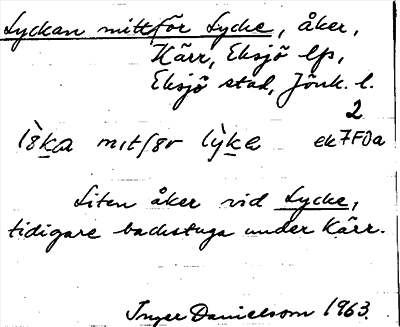 Lyckan mittför Lycke, åker,
Kärr, Eksjö lfs,
Eksjö stad, Jönk. l.
2
mıtfør ek7F0a
Liten åker vid Lycke,
tidigare backstuga under Kärr.
Inger Danielsson 1963.